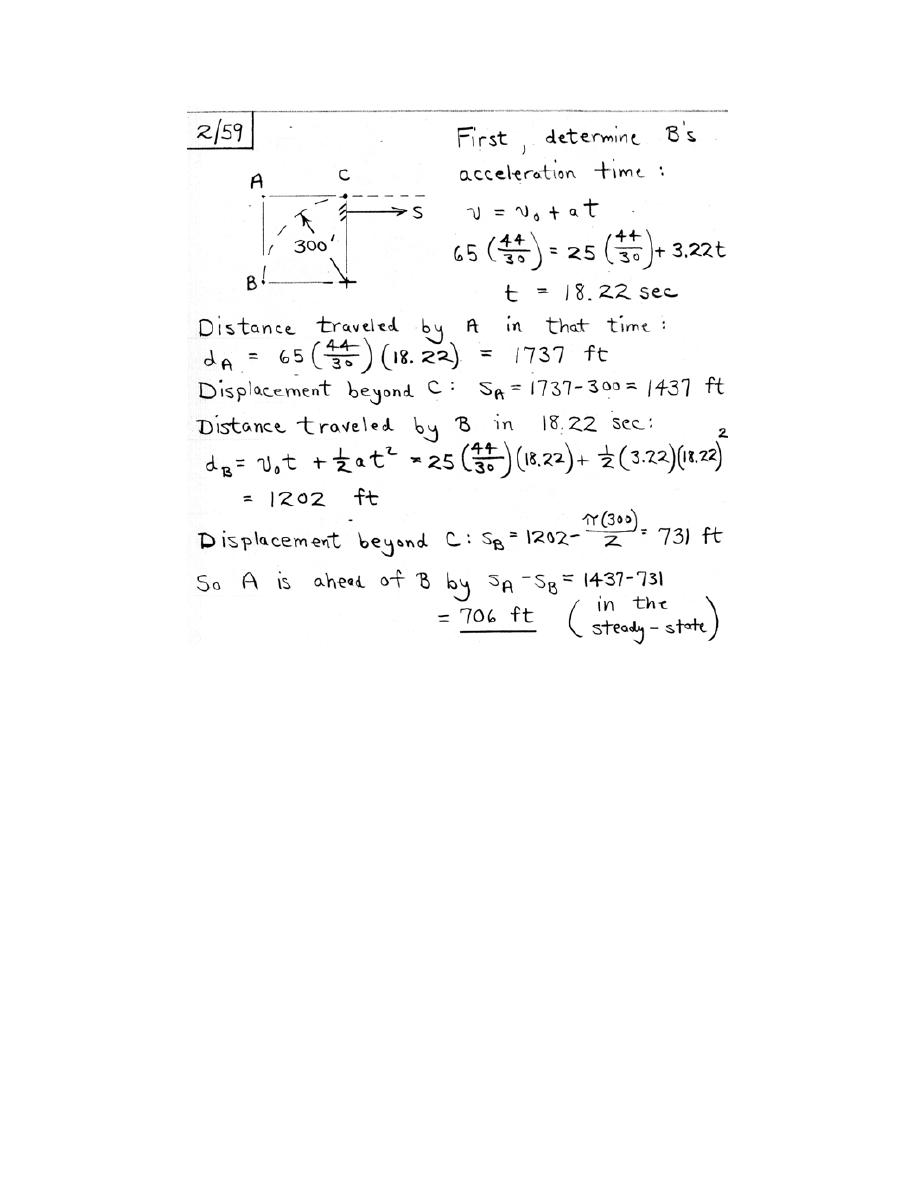 2/59
First, determine B's
acceleration time:
A
C
S
300'
B
v = v₀ + at
65 (44/30) = 25 (44/30) + 3.22t
t = 18.22 sec
Distance traveled by A in that time:
d_A = 65 (44/30) (18.22) = 1737 ft
Displacement beyond C: S_A = 1737-300 = 1437 ft
Distance traveled by B in 18.22 sec:
d_B = v₀t + ½at² = 25 (44/30)(18.22) + ½(3.22)(18.22)²
= 1202 ft
Displacement beyond C: S_B = 1202 - π(300)/2 = 731 ft
So A is ahead of B by S_A - S_B = 1437-731
= 706 ft (in the steady-state)